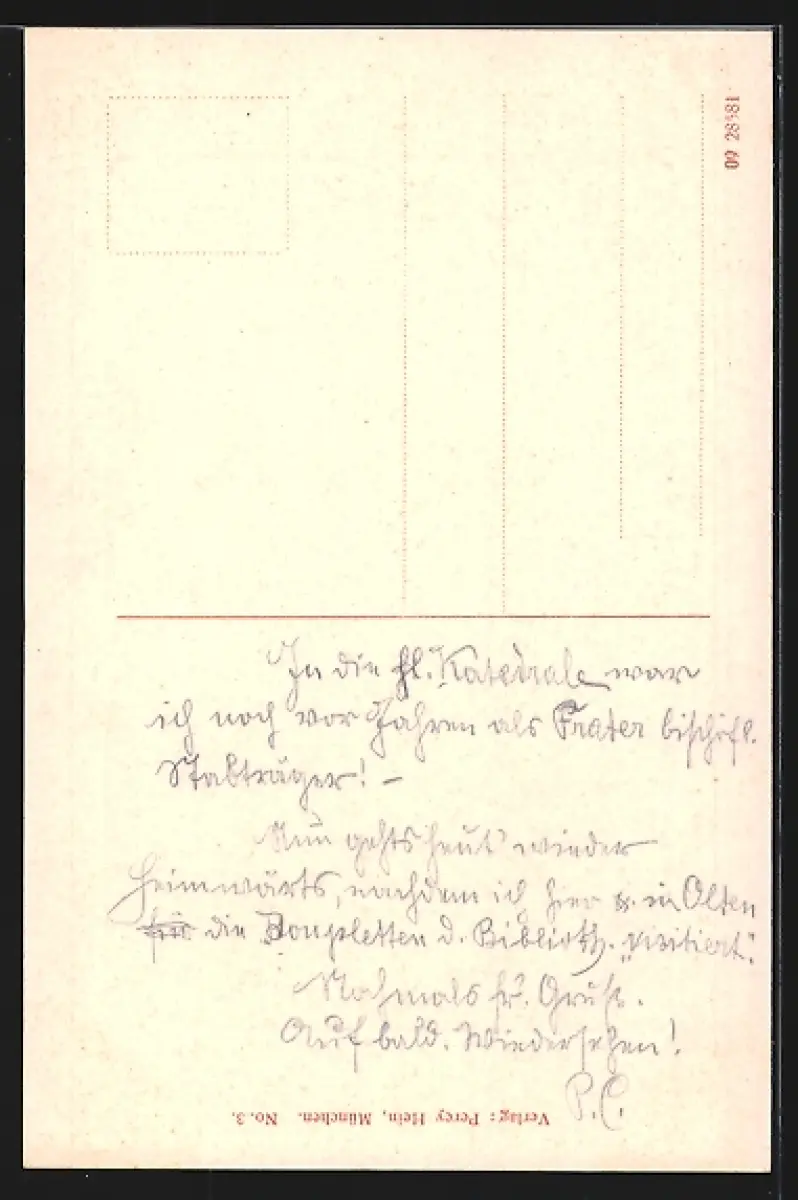 09 28481
In die hl. Katedrale war
ich noch vor Jahren als Frater bischöfl.
Stabträger! –
Nun gehts heut' wieder
heimwärts, nachdem ich hier u. in Olten
für die Doupletten d. Biblioth. „visitiert".
Nochmals hz. Grüße.
Auf bald. Wiedersehen!
P. C.
Verlag: Percy Hein, München. No. 3.